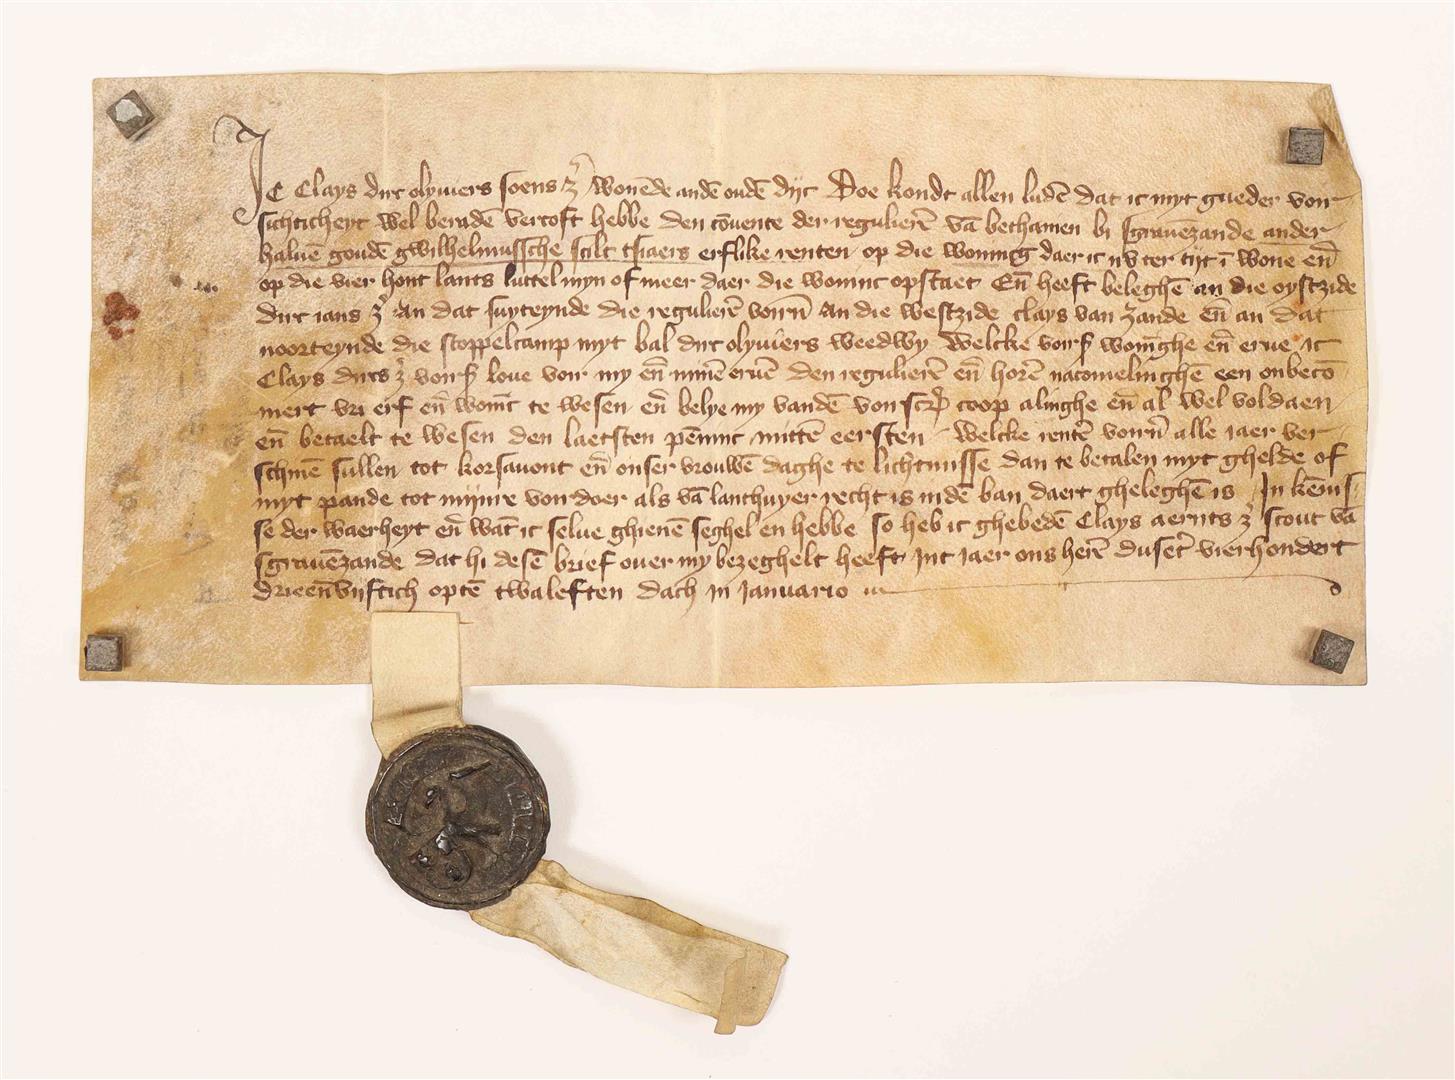 Ic Clays dirc olyviers soens z̃ wonēde andē oudē dijc Doe kondt allen ludē dat ic myt gueder vor
sichticheyt wel beradē vercoft hebbe den cōvente der regulierē vā bethanien bi sgravēzande ander
halvē goudē gwilhelmussche scilt tsiaers erflike renten op die woning daer ic nv ter tijt ī wone eñ
op die vier hont lants luttel myn of meer daer die woninc opstaet Eñ heeft beleghē an die oystzide
dirc ians z̃ An dat suyteynde die regulierē voirñ An die westzide clays van zande eñ an dat
noorteynde die stoppelcamp myt bal dirc olyviers weedwy Welcke vors̃ wonīghe eñ erve ic
Clays dircs z̃ vors̃ love vor my eñ minē ervē den regulierē eñ horē nacomelinghē een onbecō
mert vri erf eñ wonīc te wesen eñ belye my vandē vorscrẽ coop alinghe eñ al wel voldaen
eñ betaelt te wesen den laetsten pēninc mittē eersten Welcke rentē voirñ alle iaer ver
schinē sullen tot korsavont eñ onser vrouwē daghe te lichtmisse dan te betalen myt ghelde of
myt pande tot mijnre vordoer als vā lanthuyer recht is indē ban daert gheleghē is In kēnis
se der waerheyt eñ wāt ic selve ghienē seghel en hebbe so heb ic ghebedē Clays aernts z̃ scout vā
sgravēzande dat hi desē brief over my bezeghelt heeft Int iaer ons herē dusēt vierhondert
drieeñvijftich optē twaleften dach in Januario